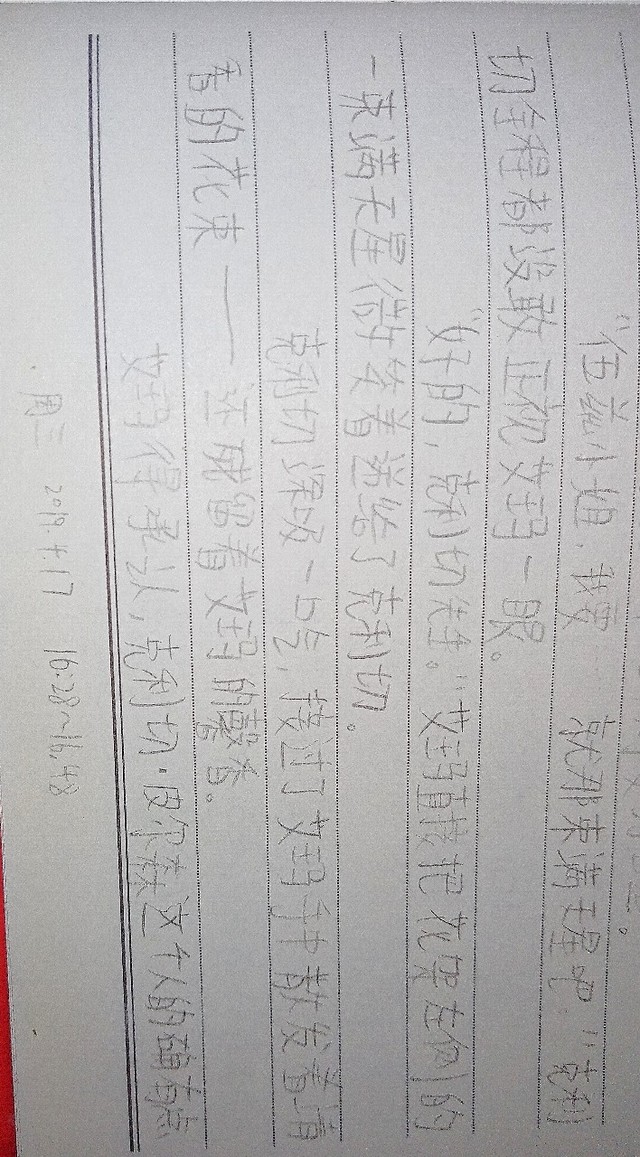 “伍端小姐，我要 就那束满天星吧。”克利
切全程都没敢正视艾玛一眼。
“好的，克利切先生。”艾玛直接把花架左侧的
一束满天星微笑着送给了克利切。
克利切深吸一口气，接过了艾玛手中散发着清
香的花束——还残留着艾玛的馨香。
艾玛得承认，克利切·皮尔森这个人的确有点
周三 2019.4.17 16:28~16:48